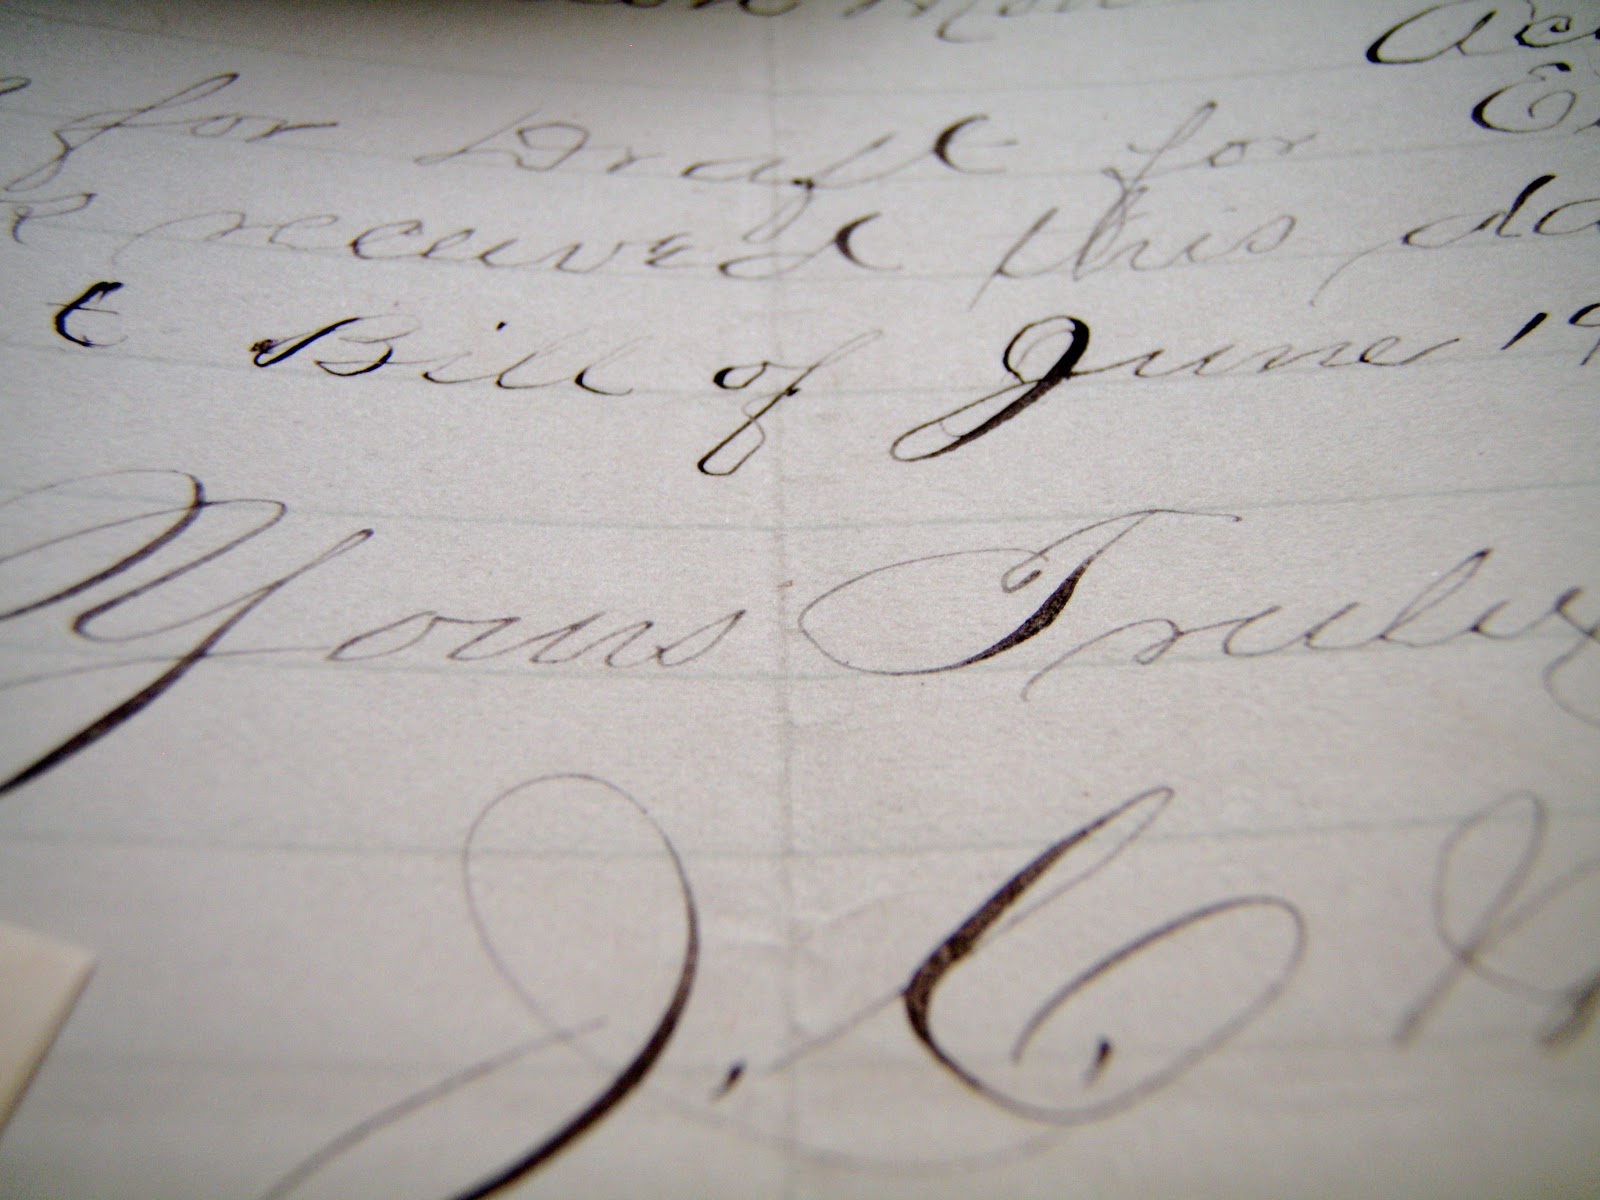 for Draft for
received this
Bill of June 19
Yours Truly
J. C.